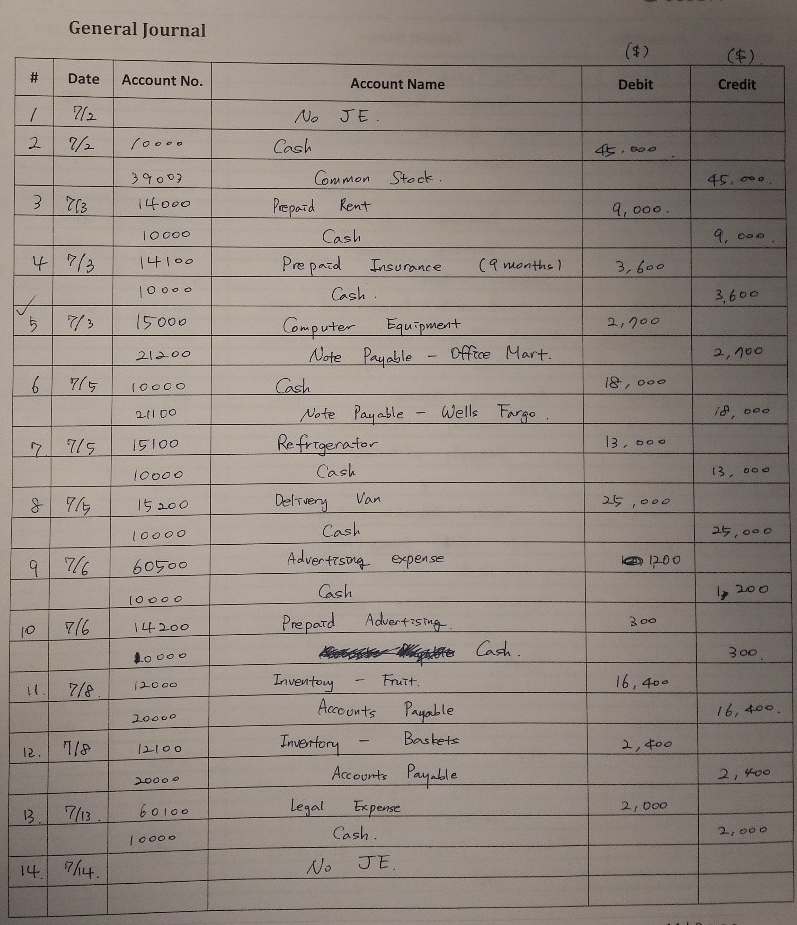 General Journal
($) ($)
# Date Account No. Account Name Debit Credit
1 7/2 No JE.
2 7/2 10000 Cash 45,000
39007 Common Stock. 45,000.
3 7/3 14000 Prepaid Rent 9,000.
10000 Cash 9,000.
4 7/3 14100 Prepaid Insurance (9 months) 3,600
10000 Cash. 3,600
✓
5 7/3 15000 Computer Equipment 2,700
21200 Note Payable - Office Mart. 2,700
6 7/5 10000 Cash 18,000
21100 Note Payable - Wells Fargo. 18,000
7 7/5 15100 Refrigerator 13,000
10000 Cash 13,000
8 7/5 15200 Delivery Van 25,000
10000 Cash 25,000
9 7/6 60500 Advertising expense 1200
10000 Cash 1,200
10 7/6 14200 Prepaid Advertising. 300
10000 Cash. 300.
11. 7/8. 12000 Inventory - Fruit. 16,400
20000 Accounts Payable 16,400.
12. 7/8 12100 Inventory - Baskets 2,400
20000 Accounts Payable 2,400
13. 7/13. 60100 Legal Expense 2,000
10000 Cash. 2,000
14. 7/14. No JE.